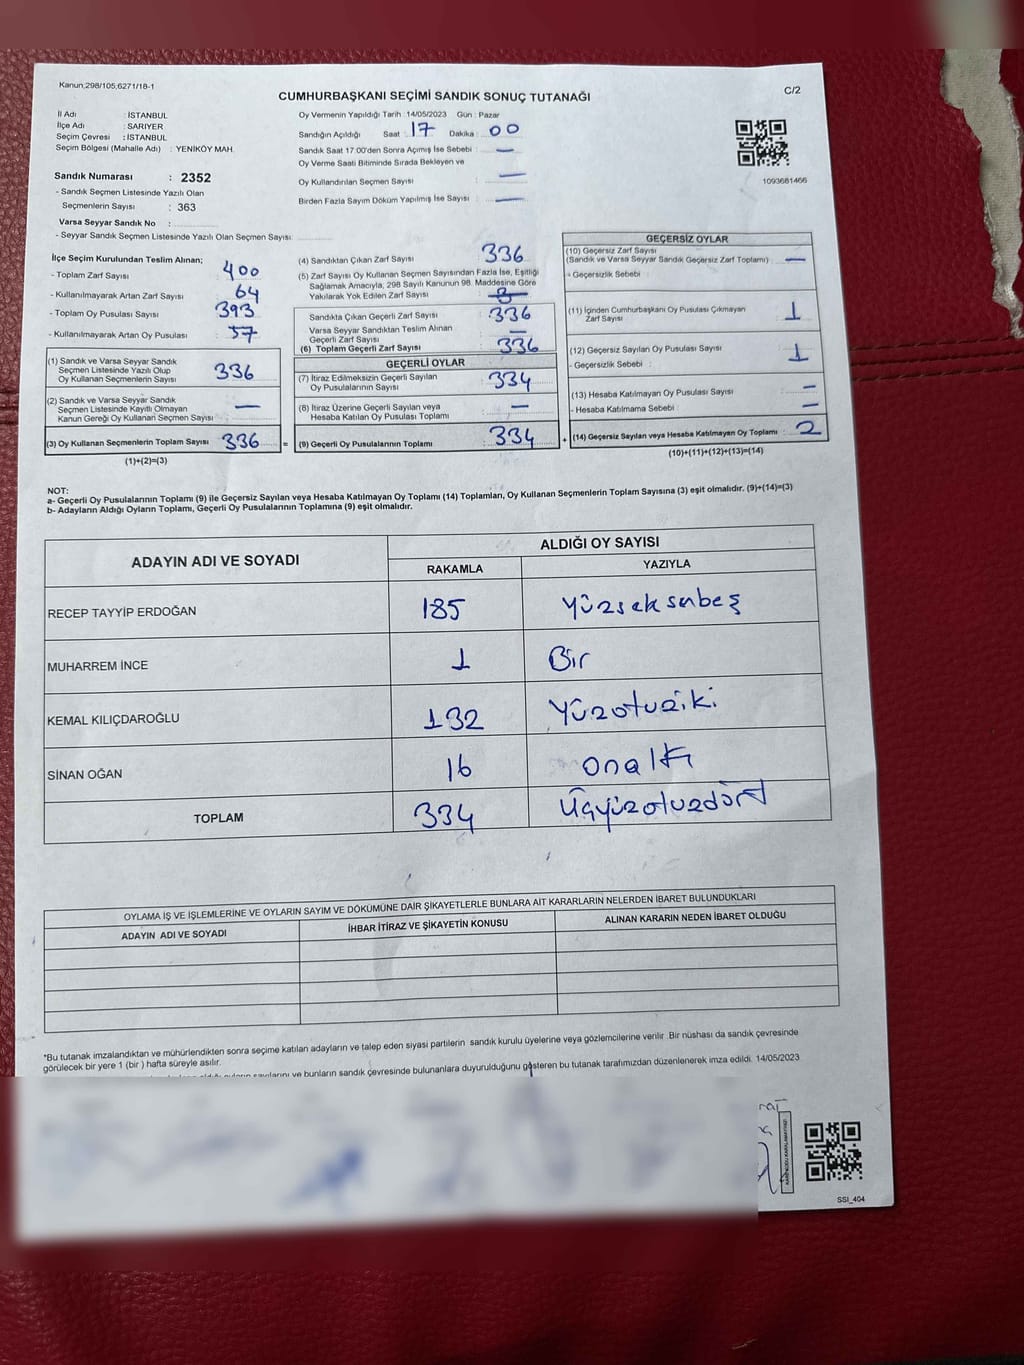 Kanun,298/105,6271/18-1
C/2
CUMHURBAŞKANI SEÇİMİ SANDIK SONUÇ TUTANAĞI
İl Adı : İSTANBUL
İlçe Adı : SARIYER
Seçim Çevresi : İSTANBUL
Seçim Bölgesi (Mahalle Adı) : YENİKÖY MAH.
Sandık Numarası : 2352
- Sandık Seçmen Listesinde Yazılı Olan
Seçmenlerin Sayısı : 363
Varsa Seyyar Sandık No :
- Seyyar Sandık Seçmen Listesinde Yazılı Olan Seçmen Sayısı:
Oy Vermenin Yapıldığı Tarih :14/05/2023 Gün : Pazar
Sandığın Açıldığı Saat : 17 Dakika : 00
Sandık Saat 17.00'den Sonra Açımış İse Sebebi : —
Oy Verme Saati Bitiminde Sırada Bekleyen ve
Oy Kullandırılan Seçmen Sayısı : —
Birden Fazla Sayım Döküm Yapılmış İse Sayısı : —
1093681466
İlçe Seçim Kurulundan Teslim Alınan;
- Toplam Zarf Sayısı : 400
- Kullanılmayarak Artan Zarf Sayısı : 64
- Toplam Oy Pusulası Sayısı : 393
- Kullanılmayarak Artan Oy Pusulası : 57
(1) Sandık ve Varsa Seyyar Sandık
Seçmen Listesinde Yazılı Olup
Oy Kullanan Seçmenlerin Sayısı : 336
(2) Sandık ve Varsa Seyyar Sandık
Seçmen Listesinde Kayıtlı Olmayan
Kanun Gereği Oy Kullanan Seçmen Sayısı : —
(3) Oy Kullanan Seçmenlerin Toplam Sayısı : 336 =
(1)+(2)=(3)
(4) Sandıktan Çıkan Zarf Sayısı : 336
(5) Zarf Sayısı Oy Kullanan Seçmen Sayısından Fazla İse, Eşitliği
Sağlamak Amacıyla, 298 Sayılı Kanunun 98. Maddesine Göre
Yakılarak Yok Edilen Zarf Sayısı :
Sandıkta Çıkan Geçerli Zarf Sayısı : 336
Varsa Seyyar Sandıktan Teslim Alınan
Geçerli Zarf Sayısı : —
(6) Toplam Geçerli Zarf Sayısı : 336
GEÇERLİ OYLAR
(7) İtiraz Edilmeksizin Geçerli Sayılan
Oy Pusulalarının Sayısı : 334
(8) İtiraz Üzerine Geçerli Sayılan veya
Hesaba Katılan Oy Pusulası Toplamı : —
(9) Geçerli Oy Pusulalarının Toplamı : 334 +
GEÇERSİZ OYLAR
(10) Geçersiz Zarf Sayısı
(Sandık ve Varsa Seyyar Sandık Geçersiz Zarf Toplamı) : —
- Geçersizlik Sebebi :
(11) İçinden Cumhurbaşkanı Oy Pusulası Çıkmayan
Zarf Sayısı : 1
(12) Geçersiz Sayılan Oy Pusulası Sayısı : 1
- Geçersizlik Sebebi :
(13) Hesaba Katılmayan Oy Pusulası Sayısı : —
- Hesaba Katılmama Sebebi : —
(14) Geçersiz Sayılan veya Hesaba Katılmayan Oy Toplamı : 2
(10)+(11)+(12)+(13)=(14)
NOT:
a- Geçerli Oy Pusulalarının Toplamı (9) ile Geçersiz Sayılan veya Hesaba Katılmayan Oy Toplamı (14) Toplamları, Oy Kullanan Seçmenlerin Toplam Sayısına (3) eşit olmalıdır. (9)+(14)=(3)
b- Adayların Aldığı Oyların Toplamı, Geçerli Oy Pusulalarının Toplamına (9) eşit olmalıdır.
ADAYIN ADI VE SOYADI
ALDIĞI OY SAYISI
RAKAMLA YAZIYLA
RECEP TAYYİP ERDOĞAN 185 Yüzseksenbeş
MUHARREM İNCE 1 Bir
KEMAL KILIÇDAROĞLU 132 Yüzotuziki
SİNAN OĞAN 16 onaltı
TOPLAM 334 Üçyüzotuzdört
OYLAMA İŞ VE İŞLEMLERİNE VE OYLARIN SAYIM VE DÖKÜMÜNE DAİR ŞİKAYETLERLE BUNLARA AİT KARARLARIN NELERDEN İBARET BULUNDUKLARI
ADAYIN ADI VE SOYADI
İHBAR İTİRAZ VE ŞİKAYETİN KONUSU
ALINAN KARARIN NEDEN İBARET OLDUĞU
*Bu tutanak imzalandıktan ve mühürlendikten sonra seçime katılan adayların ve talep eden siyasi partilerin sandık kurulu üyelerine veya gözlemcilerine verilir. Bir nüshası da sandık çevresinde
görülecek bir yere 1 (bir) hafta süreyle asılır.
ve bunların sandık çevresinde bulunanlara duyurulduğunu gösteren bu tutanak tarafımızdan düzenlenerek imza edildi. 14/05/2023
SSI_404